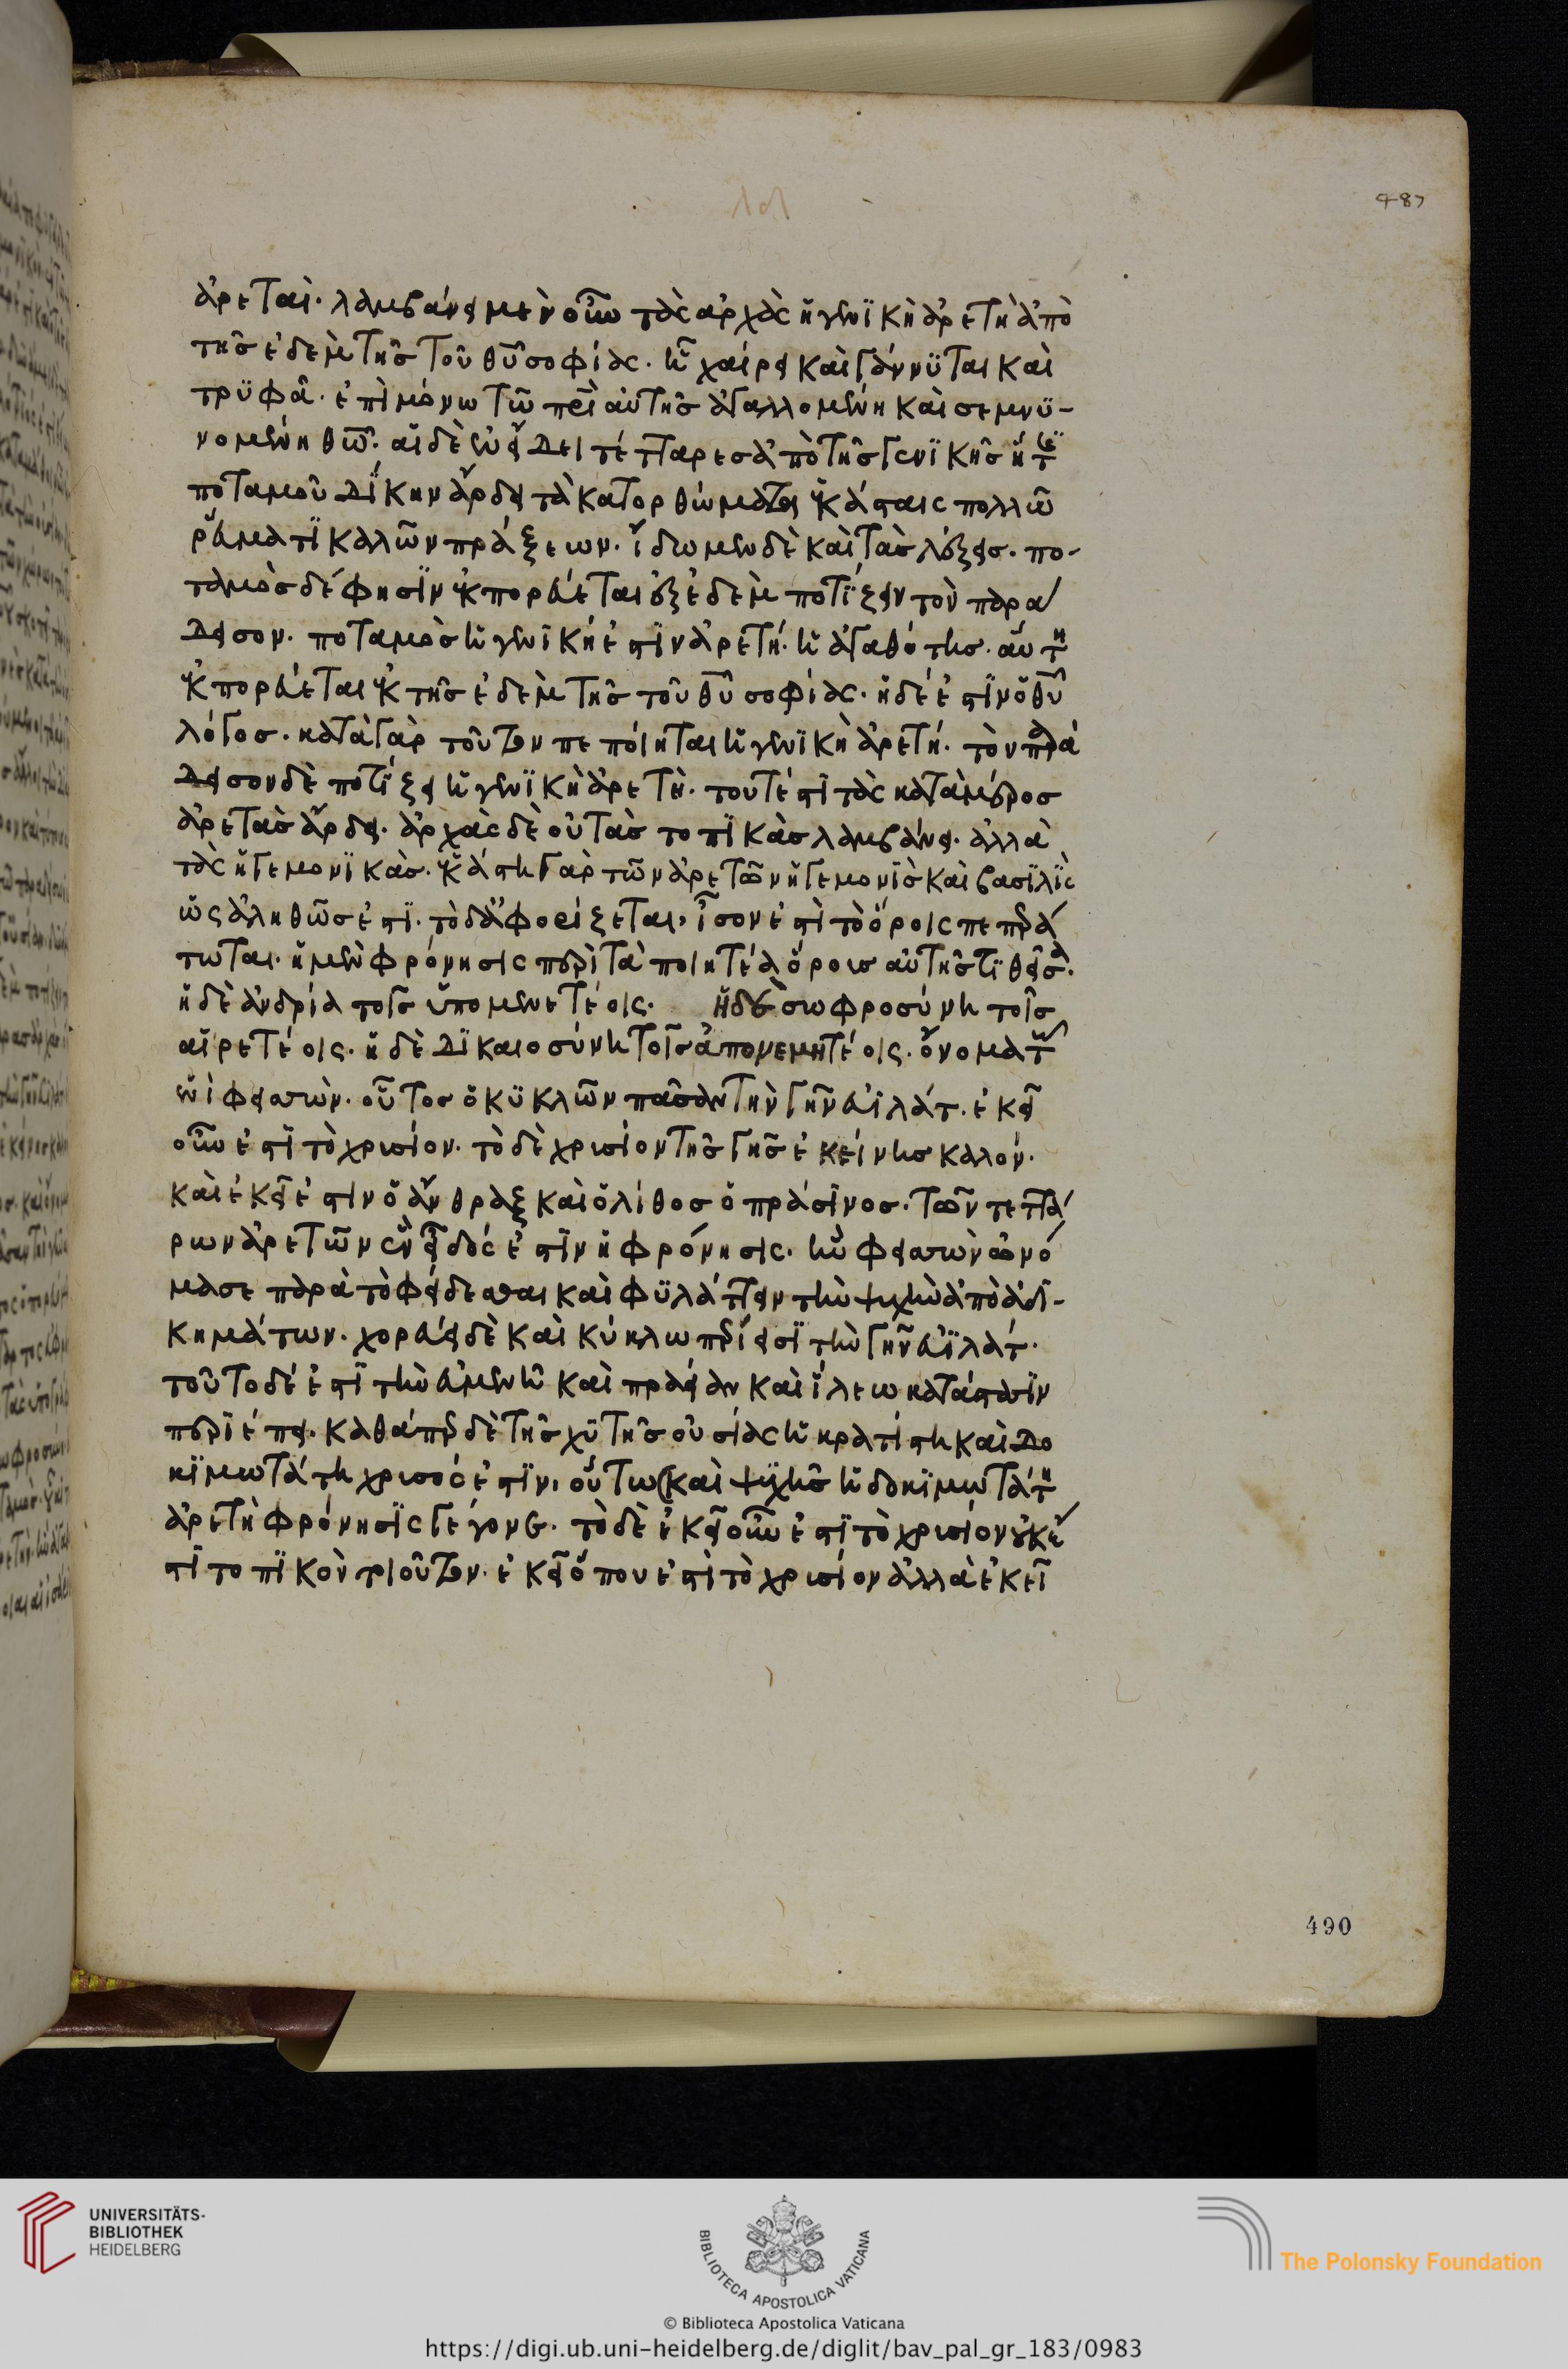 487
ἀρεταί. λαμβάνει μὲν οὖν τὰς ἀρχὰς ἡ γενικὴ ἀρετὴ ἀπὸ
τῆς ἐδὲμ τῆς τοῦ θῦ σοφίας. ἣ χαίρει καὶ γάννϋται καὶ
τρϋφᾶ. ἐπὶ μόνω τῶ πρὶ αὐτῆς ἀγαλλομένη καὶ σεμνϋ-
νομένη θῶ. αἱ δὲ ἐν εἴδει τέτταρες ἀπὸ τῆς γενϊκῆς ἥτ
ποταμοῦ δίκην ἄρδει τὰ κατορθώματα ἑκάσταις πολλῶ
ῥεύματϊ καλῶν πράξεων. ἴδωμεν δὲ καὶ τὰς λέξεις. πο-
ταμὸς δέ φησϊν ἐκπορεύεται ἐξ ἐδὲμ ποτίζειν τὸν παρά
δεισον. ποταμὸς ἡ γενϊκή ἐστϊν ἀρετή. ἡ ἀγαθότης. αὕτη
ἐκπορεύεται ἐκ τῆς ἐδὲμ τῆς τοῦ θῦ σοφίας. ἡ δέ ἐστϊν ὁ θῦ
λόγος. κατὰ γὰρ τοῦτον πεποίηται ἡ γενϊκὴ ἀρετή. τὸν παρά
δεισον δὲ ποτίζει ἡ γενϊκὴ ἀρετή. τουτέστϊ τὰς κατὰ μέρος
ἀρετὰς ἄρδει. ἀρχὰς δὲ οὐ τὰς τοπϊκὰς λαμβάνει. ἀλλὰ
τὰς ἡγεμονϊκάς. ἑκάστη γὰρ τῶν ἀρετῶν ἡγεμονὶς καὶ βασϊλὶς
ὡς ἀληθῶς ἐστϊ. τὸ δὲ ἀφορίζεται, ἴσον ἐστὶ τὸ ὅροις πεπερά
τωται. ἡ μὲν φρόνησις περὶ τὰ ποιητέα ὅρους αὐτῆς τϊθεῖσα.
ἡ δὲ ἀνδρία τοῖς ὑπομενετέοις. ἡ δὲ σωφροσύνη τοῖς
αἱρετέοις. ἡ δὲ δϊκαιοσύνη τοῖς ἀπονεμητέοις. ὄνομα τῶ
ἑνὶ φεισών. οὗτος ὁ κϋκλῶν πᾶσαν τὴν γῆν εὐϊλάτ. ἐκεῖ
οὗ ἐστϊ τὸ χρυσίον. τὸ δὲ χρυσίον τῆς γῆς ἐκείνης καλόν.
καὶ ἐκεῖ ἐστιν ὁ ἄνθραξ καὶ ὁ λίθος ὁ πράσϊνος. τῶν τεττά
ρων ἀρετῶν ἓν εἶδός ἐστϊν ἡ φρόνησις. ἣν φεισὼν ὠνό
μασε παρὰ τὸ φείδεσθαι καὶ φϋλάττειν τὴν ψυχὴν ἀπὸ ἀδϊ-
κημάτων. χορεύει δὲ καὶ κύκλω περίεισϊ τὴν γῆν εὐϊλάτ.
τοῦτο δέ ἐστϊ τὴν εὐμενῆ καὶ πραεῖαν καὶ ἵλεω κατάστασϊν
περϊέπει. καθάπερ δὲ τῆς χϋτῆς οὐσίας ἡ κρατίστη καὶ δο
κϊμωτάτη χρυσός ἐστϊν, οὕτω καὶ ψϋχῆς ἡ δοκϊμωτάτη
ἀρετὴ φρόνησϊς γέγονε. τὸ δὲ ἐκεῖ οὗ ἐστϊ τὸ χρυσίον οὐκ ἔ
στϊ τοπϊκὸν τοιοῦτον. ἐκεῖ ὅπου ἐστὶ τὸ χρυσίον ἀλλὰ ἐκεῖ
490
UNIVERSITÄTS-
BIBLIOTHEK
HEIDELBERG
BIBLIOTECA APOSTOLICA VATICANA
The Polonsky Foundation
© Biblioteca Apostolica Vaticana
https://digi.ub.uni-heidelberg.de/diglit/bav_pal_gr_183/0983